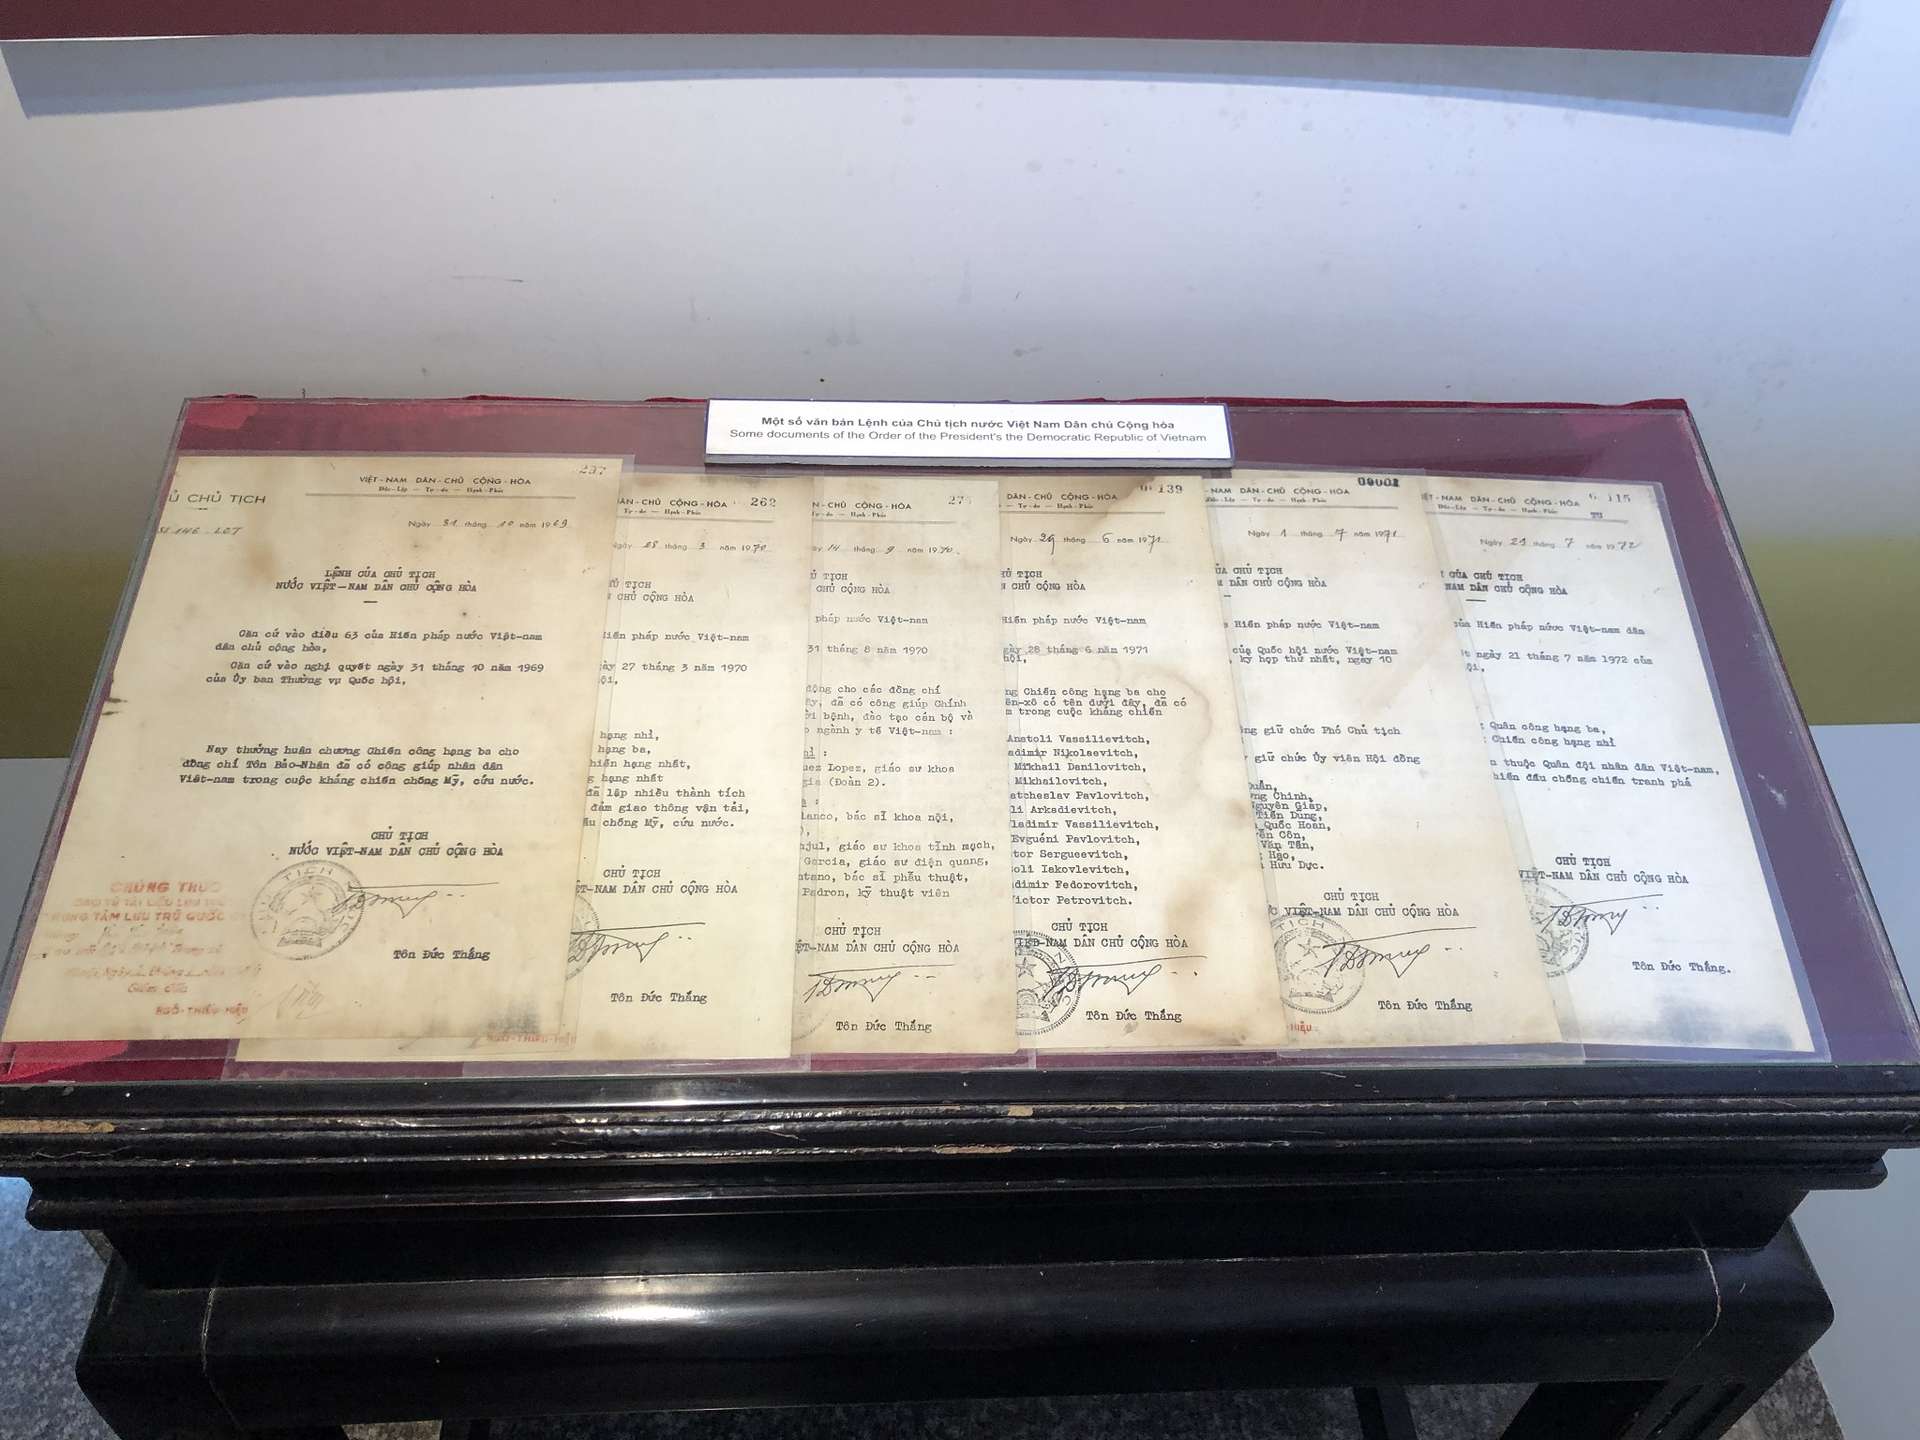 Một số văn bản Lệnh của Chủ tịch nước Việt Nam Dân chủ Cộng hòa
Some documents of the Order of the President's the Democratic Republic of Vietnam
237
VIỆT-NAM DÂN-CHỦ CỘNG-HÒA
Độc-Lập — Tự-do — Hạnh-Phúc
Ủ CHỦ TỊCH
Ngày 31 tháng 10 năm 1969
LỆNH CỦA CHỦ TỊCH
NƯỚC VIỆT-NAM DÂN CHỦ CỘNG HÒA
Căn cứ vào điều 63 của Hiến pháp nước Việt-nam
dân chủ cộng hòa,
Căn cứ vào nghị quyết ngày 31 tháng 10 năm 1969
của Ủy ban Thường vụ Quốc hội,
Nay thưởng huân chương Chiến công hạng ba cho
đồng chí Tôn Bảo-Nhân đã có công giúp nhân dân
Việt-nam trong cuộc kháng chiến chống Mỹ, cứu nước.
CHỦ TỊCH
NƯỚC VIỆT-NAM DÂN CHỦ CỘNG HÒA
Tôn Đức Thắng
CHỨNG THỰC
TRUNG TÂM LƯU TRỮ QUỐC
Giám đốc
NGÔ-THIẾU-HIỆU
262
ÂN-CHỦ CỘNG-HÒA
Tự-do — Hạnh-Phúc
Ngày 28 tháng 3 năm 1970
Ủ TỊCH
N CHỦ CỘNG HÒA
Hiến pháp nước Việt-nam
ày 27 tháng 3 năm 1970
ội,
hạng nhì,
hạng ba,
hiến hạng nhất,
g hạng nhất
đã lập nhiều thành tích
đảm giao thông vận tải,
u chống Mỹ, cứu nước.
CHỦ TỊCH
ỆT-NAM DÂN CHỦ CỘNG HÒA
Tôn Đức Thắng
N-CHỦ CỘNG-HÒA
Tự-do — Hạnh-Phúc
14 tháng 9 năm 1970
Ủ TỊCH
CHỦ CỘNG HÒA
pháp nước Việt-nam
31 tháng 8 năm 1970
động cho các đồng chí
ây, đã có công giúp Chính
ời bệnh, đào tạo cán bộ và
ngành y tế Việt-nam :
uez Lopez, giáo sư khoa
gia (Đoàn 2).
lanco, bác sĩ khoa nội,
njul, giáo sư khoa tĩnh mạch,
Garcia, giáo sư điện quang,
ntano, bác sĩ phẫu thuật,
Padron, kỹ thuật viên
CHỦ TỊCH
ỆT-NAM DÂN CHỦ CỘNG HÒA
Tôn Đức Thắng
139
DÂN-CHỦ CỘNG-HÒA
Tự-do — Hạnh-Phúc
Ngày 29 tháng 6 năm 1971
HỦ TỊCH
N CHỦ CỘNG HÒA
Hiến pháp nước Việt-nam
gày 28 tháng 6 năm 1971
hội,
ng Chiến công hạng ba cho
ên-xô có tên dưới đây, đã có
m trong cuộc kháng chiến
Anatoli Vassilievitch,
adimir Nikolaevitch,
Mikhail Danilovitch,
Mikhailovitch,
atcheslav Pavlovitch,
li Arkadievitch,
ladimir Vassilievitch,
Evguéni Pavlovitch,
tor Sergueevitch,
oli Iakovlevitch,
dimir Fedorovitch,
Victor Petrovitch.
CHỦ TỊCH
VIỆT-NAM DÂN CHỦ CỘNG HÒA
Tôn Đức Thắng
00001
NAM DÂN-CHỦ CỘNG-HÒA
Độc-Lập — Tự-do — Hạnh-Phúc
Ngày 1 tháng 7 năm 1971
ỦA CHỦ TỊCH
M DÂN CHỦ CỘNG HÒA
Hiến pháp nước Việt-nam
của Quốc hội nước Việt-nam
, kỳ họp thứ nhất, ngày 10
ng giữ chức Phó Chủ tịch
giữ chức Ủy viên Hội đồng
Duẩn,
ng Chinh,
Nguyên Giáp,
Tiến Dũng,
Quốc Hoàn,
yễn Côn,
Văn Tấn,
Hào,
Hữu Dực.
CHỦ TỊCH
VIỆT-NAM DÂN CHỦ CỘNG HÒA
Tôn Đức Thắng
115
ỆT-NAM DÂN-CHỦ CỘNG-HÒA
Độc-Lập — Tự-do — Hạnh-Phúc
Ngày 21 tháng 7 năm 1972
CỦA CHỦ TỊCH
NAM DÂN CHỦ CỘNG HÒA
của Hiến pháp nước Việt-nam dân
ngày 21 tháng 7 năm 1972 của
ội,
: Quân công hạng ba,
: Chiến công hạng nhì
n thuộc Quân đội nhân dân Việt-nam,
hiến đấu chống chiến tranh phá
CHỦ TỊCH
VIỆT-NAM DÂN CHỦ CỘNG HÒA
Tôn Đức Thắng.